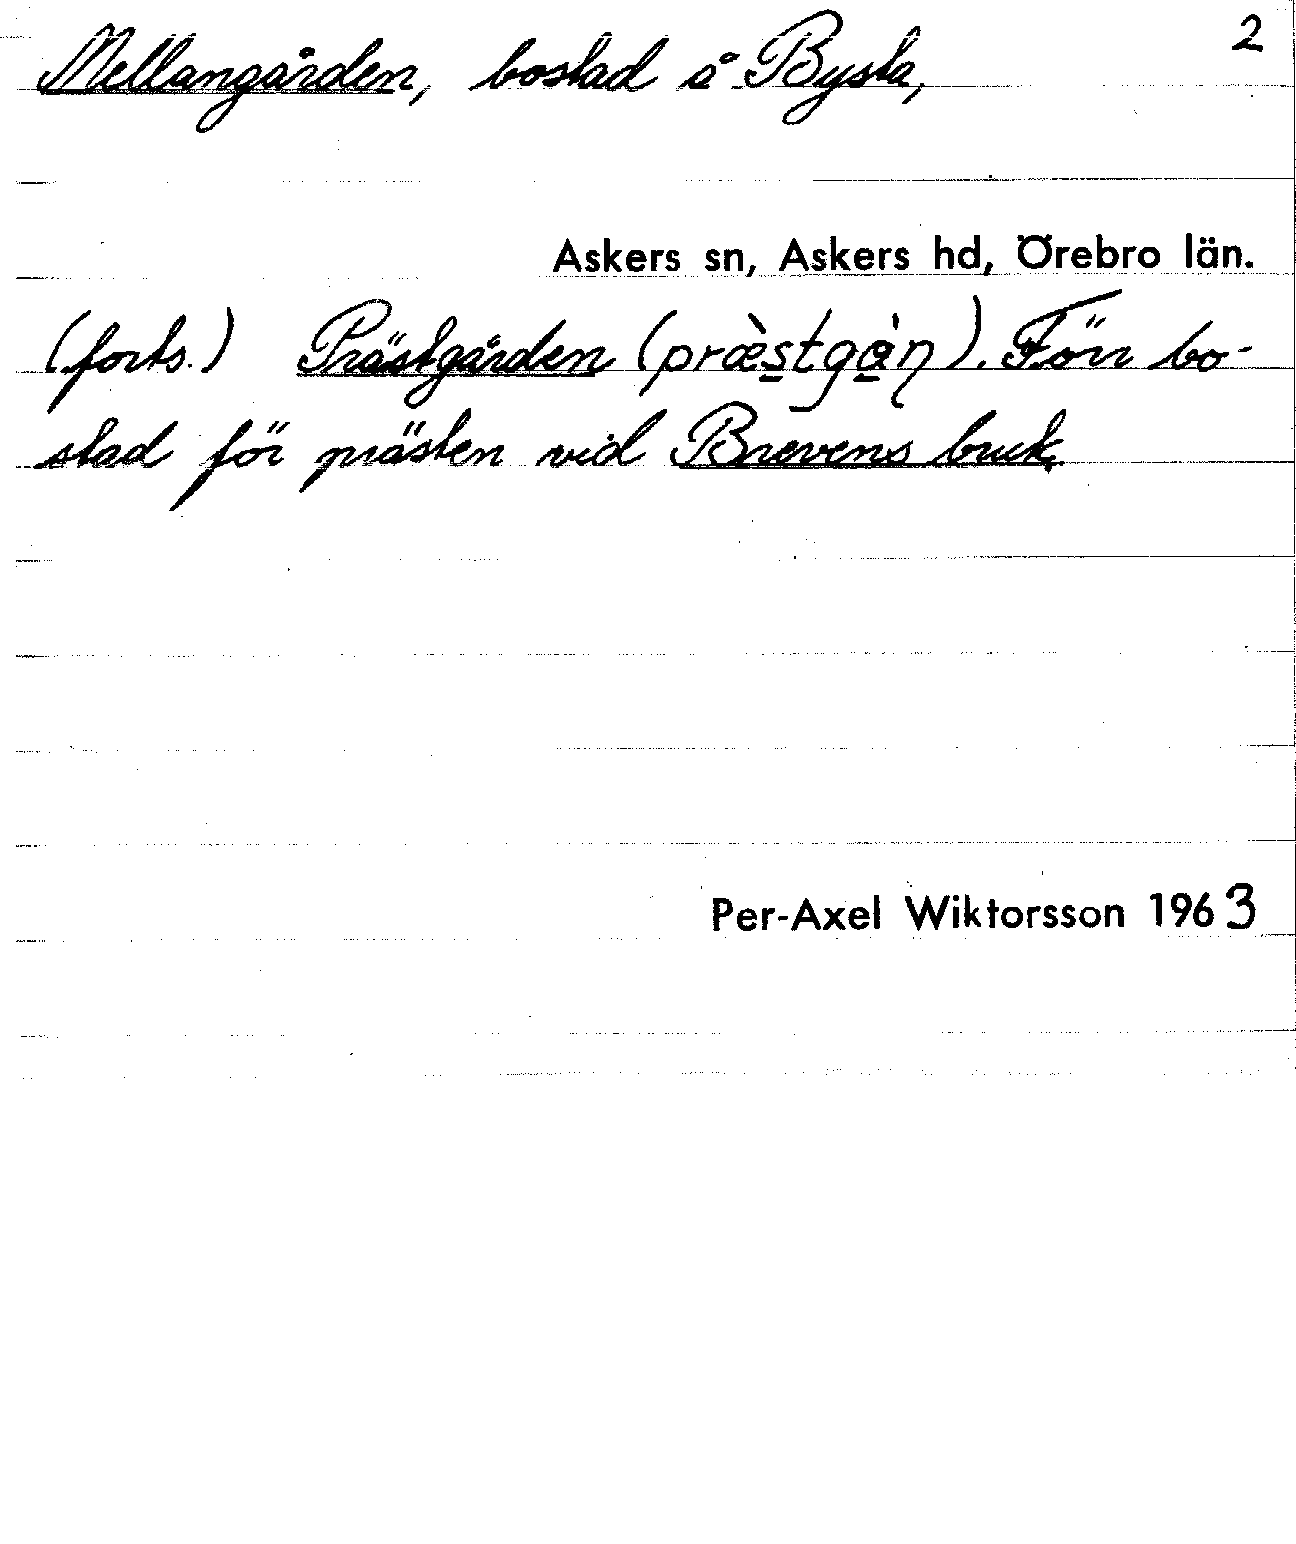 2
Mellangården, bostad å Bysta,
Askers sn, Askers hd, Örebro län.
(forts.) Prästgården (præ̀stgɑ̀ṇ). Förr bo-
stad för prästen vid Brevens bruk.
Per-Axel Wiktorsson 1963